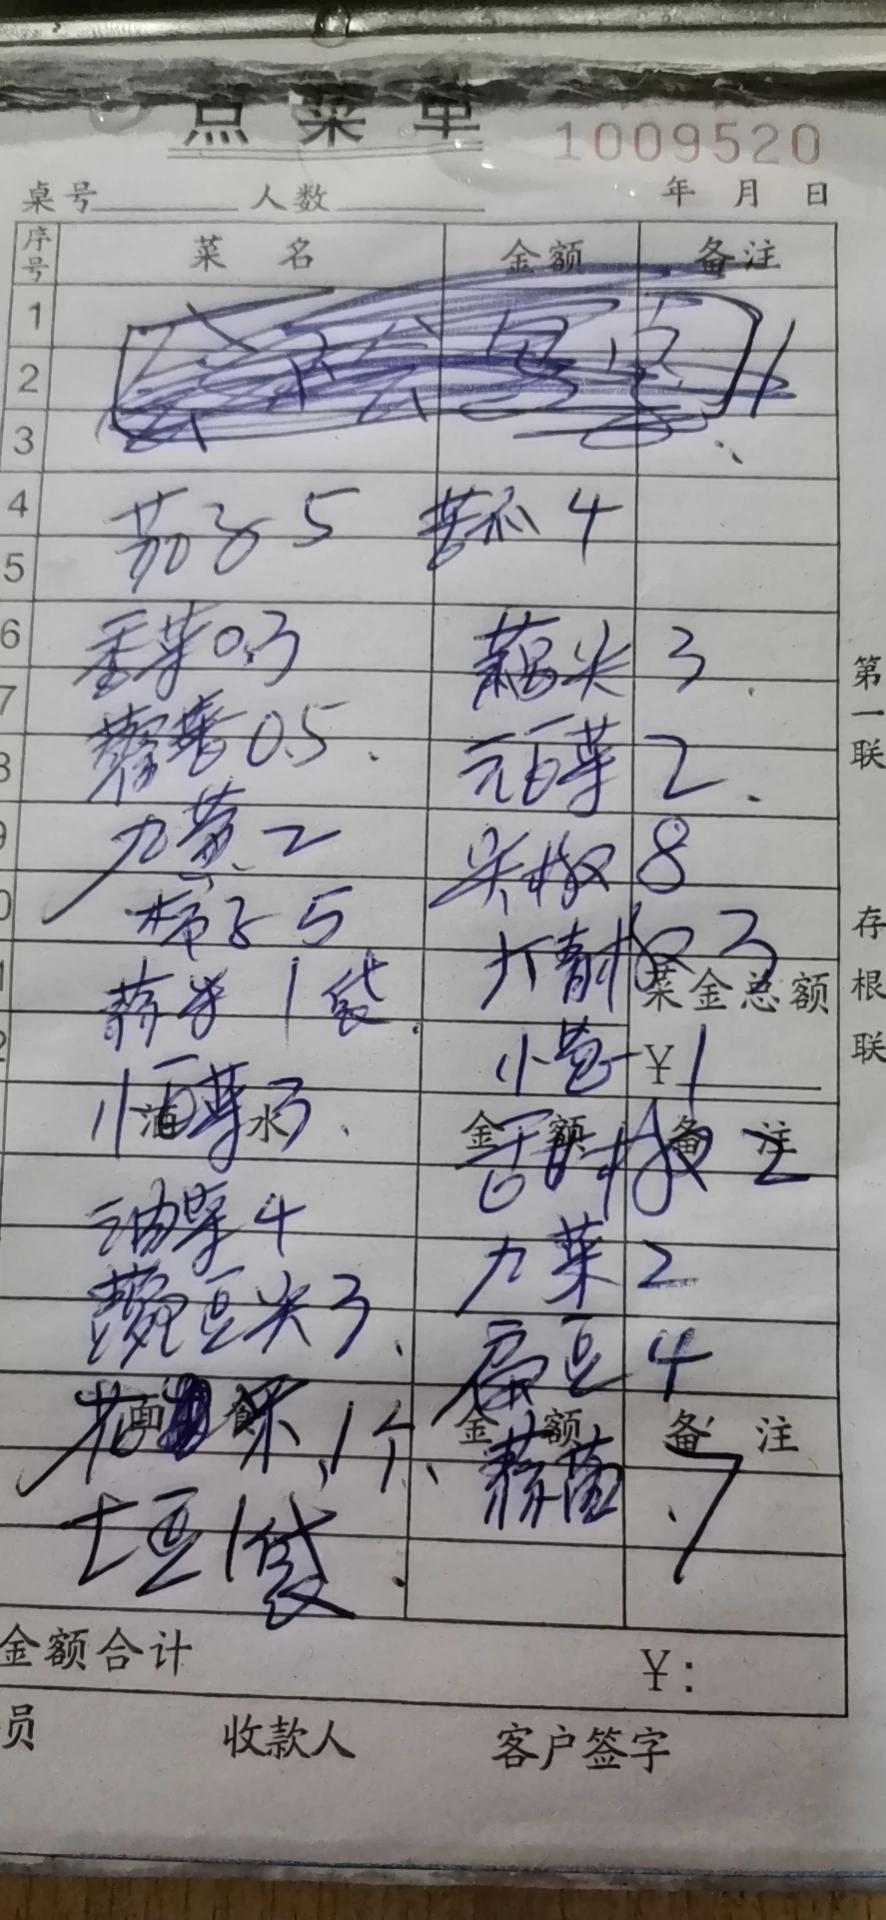 点菜单
1009520
桌号 人数 年 月 日
序号 菜名 金额 备注
1
2
3
4
茄子 5 苦瓜 4
5
6
香菜 0.3 藕尖 3
7
0.5 元白菜 2
九黄 2 尖椒 8
柿子 5 大青椒 3
菜金总额
蒜米 1袋
小葱 1
¥
小白菜 3
酒水 金额 备注
油菜 4 九菜 2
豌豆尖 3 扁豆 4
1个
面食 金额 备注
土豆 1袋
7
金额合计 ¥:
员 收款人 客户签字
第一联
存根联